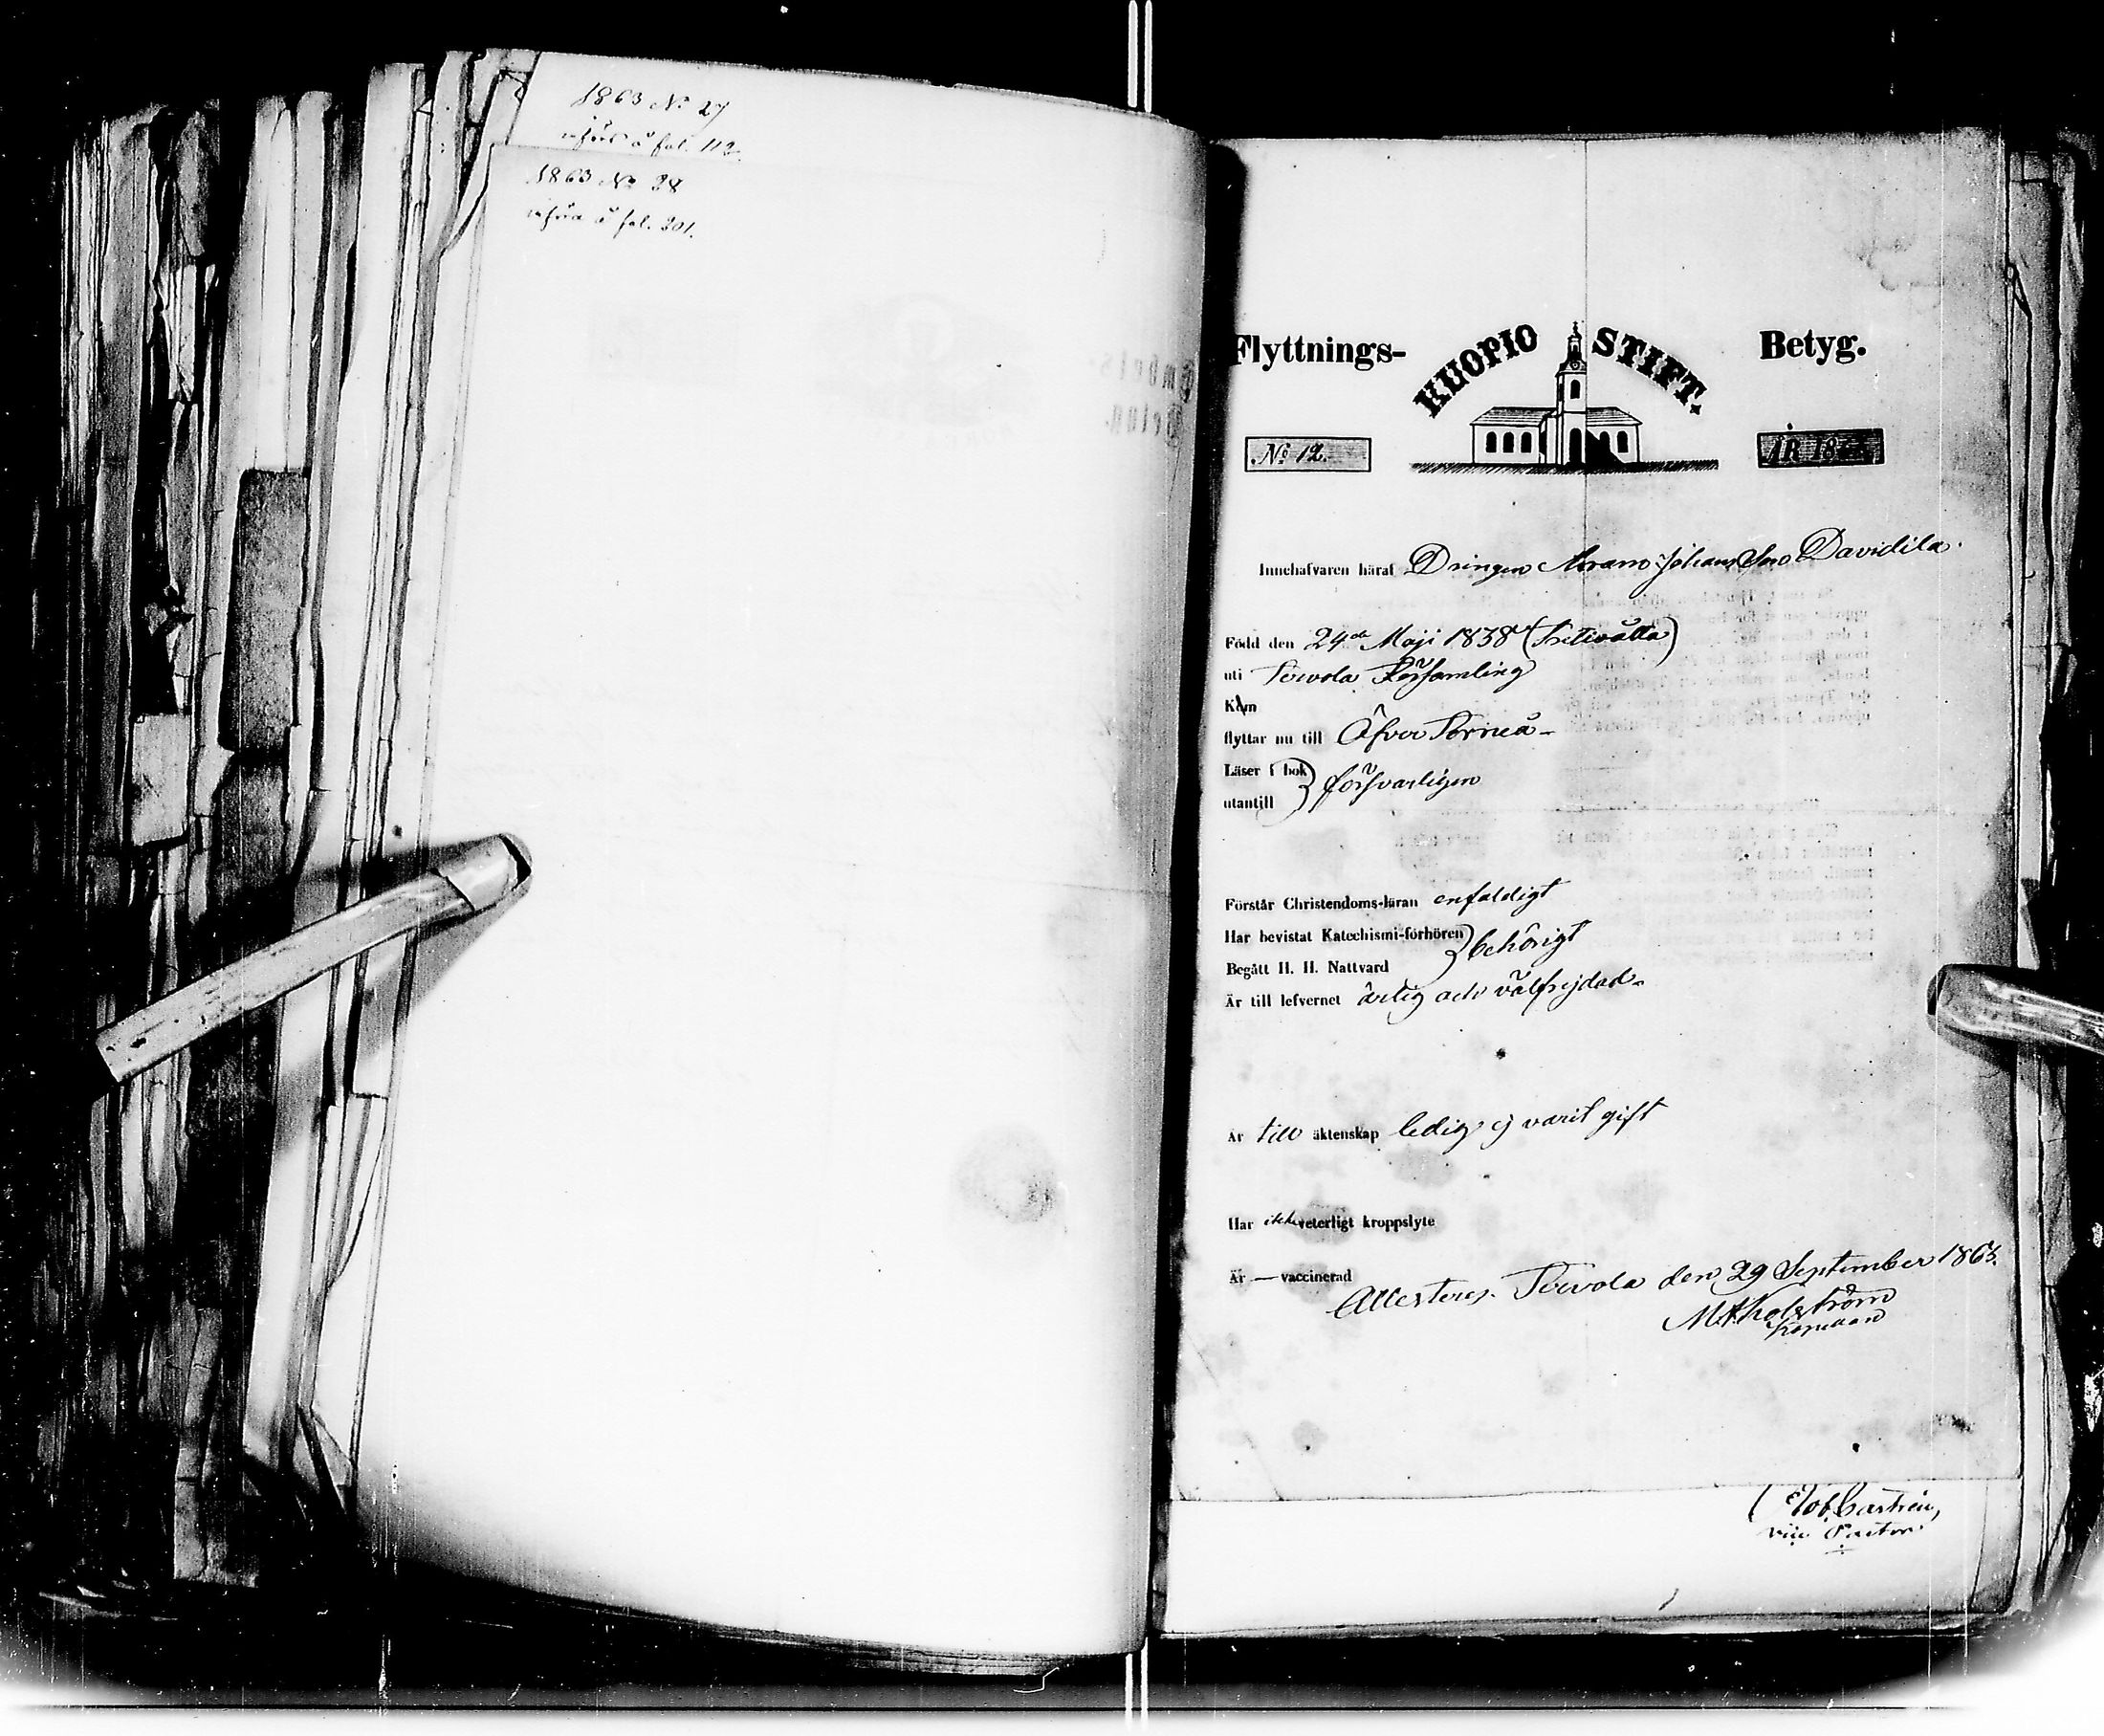 1863 No 27
införd å fol. 112.
1863 No 28
införd å fol. 201.
Flyttnings- KUOPIO STIFT. Betyg.
No 12. ÅR 18
Innehafvaren häraf Drängen Abram Johansson Davidila.
Född den 24de Maji 1838
uti Tervola Församling
Kom
flyttar nu till Öfver Torneå
Läser i bok
utantill } försvarligen
Förstår Christendoms-läran enfaldigt
Har bevistat Katechismi-förhören
Begått H. H. Nattvard } behörigt
Är till lefvernet ärlig och välfrejdad
Är till äktenskap ledig ej varit gift
Har icke veterligt kroppslyte
Är — vaccinerad
Attesteras. Tervola den 29 September 1863.
Kapellan
Castrén,
vice Pastor.